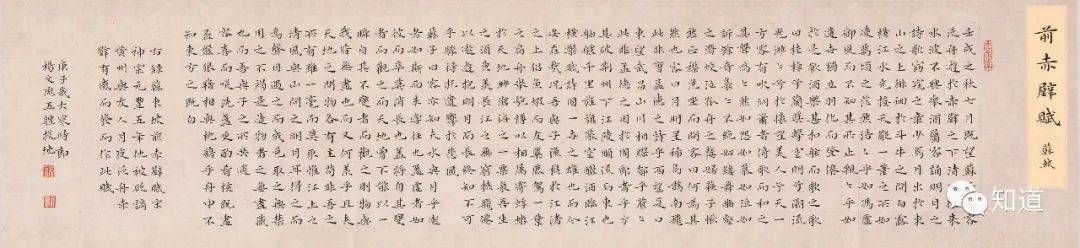 前赤壁賦
蘇軾
壬戌之秋七月既望蘇子與客
泛舟遊於赤壁之下清風徐來
水波不興舉酒屬客誦明月之
詩歌窈窕之章少焉月出於東
山之上徘徊於斗牛之間白露
橫江水光接天縱一葦之所如
凌萬頃之茫然浩浩乎如馮虛
御風而不知其所止飄飄乎如
遺世獨立羽化而登僊
於是飲酒樂甚扣舷而歌之歌
曰桂棹兮蘭槳擊空明兮泝流
光渺渺兮予懷望美人兮天一
方客有吹洞簫者倚歌而和之
其聲嗚嗚然如怨如慕如泣如
訴餘音嫋嫋不絕如縷舞幽壑
之潛蛟泣孤舟之嫠婦蘇子愀
然正襟危坐而問客曰何為其
然也客曰月明星稀烏鵲南飛
此非曹孟德之詩乎西望夏口
東望武昌山川相繆鬱乎蒼蒼
此非孟德之困於周郎者乎方
其破荊州下江陵順流而東也
舳艫千里旌旗蔽空釃酒臨江
橫槊賦詩固一世之雄也而今
安在哉況吾與子漁樵於江渚
之上侶魚蝦而友麋鹿駕一葉
之扁舟舉匏樽以相屬寄蜉蝣
於天地渺滄海之一粟哀吾生
之須臾羨長江之無窮挾飛僊
以遨遊抱明月而長終知不可
乎驟得託遺響於悲風
蘇子曰客亦知夫水與月乎逝
者如斯而未嘗往也盈虛者如
彼而卒莫消長也蓋將自其變
者而觀之則天地曾不能以一
瞬自其不變者而觀之則物與
我皆無盡也而又何羨乎且夫
天地之間物各有主苟非吾之
所有雖一毫而莫取惟江上之
清風與山間之明月耳得之而
為聲目遇之而成色取之無禁
用之不竭是造物者之無盡藏
也而吾與子之所共
客喜而笑洗盞更酌肴核既盡
杯盤狼藉相與枕藉乎舟中不
知東方之既白
右錄蘇東坡前赤壁賦宋
神宗元豐五年他被貶謫
黃州與友人月夜泛舟赤
壁有感而發而作此賦
庚子歲大寒時節
楊文 五體投地
知道